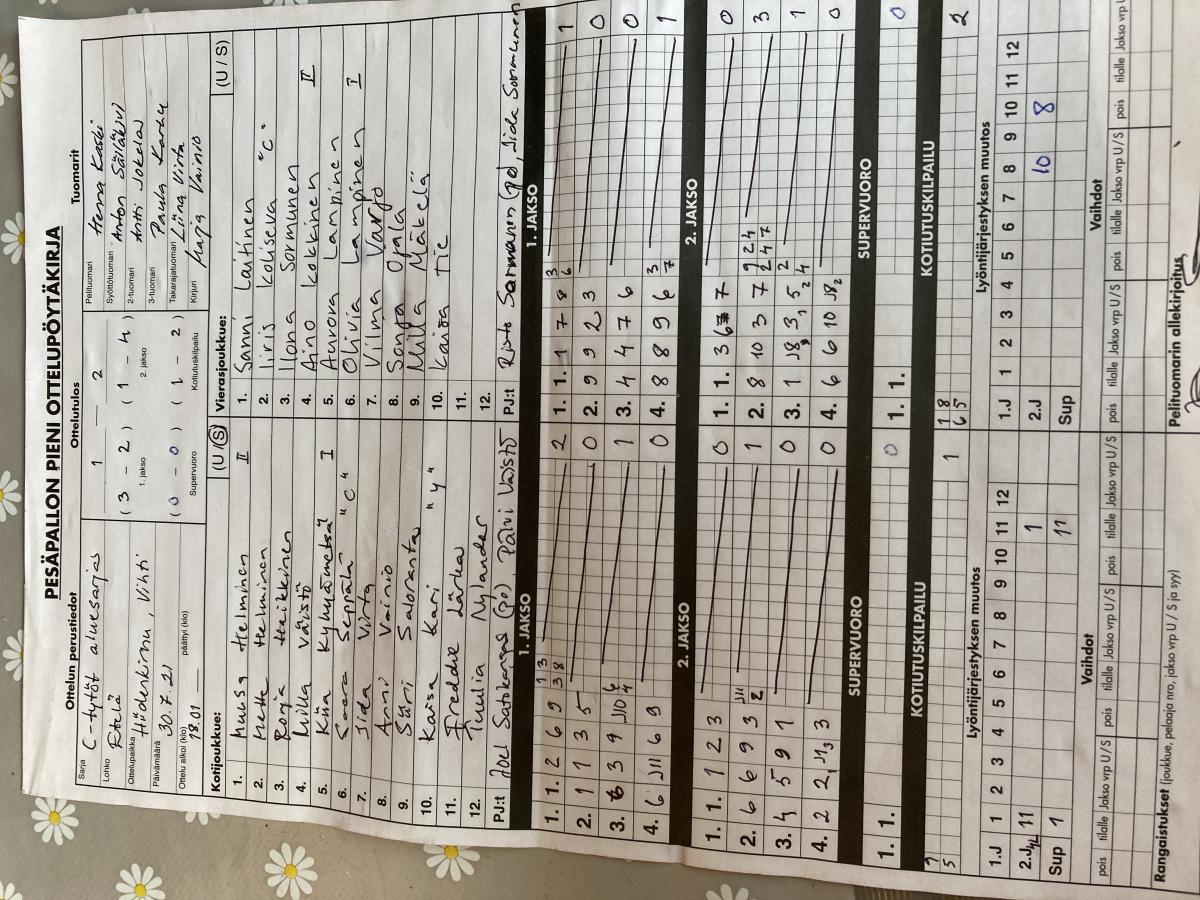 PESÄPALLON PIENI OTTELUPÖYTÄKIRJA
Ottelun perustiedot
Sarja C-tytöt aluesarja
Lohko Etelä
Ottelupaikka Hiidenkirnu, Vihti
Päivämäärä 30.7.21
Ottelu alkoi (klo) 18.01 päättyi (klo)
Ottelutulos
1 — 2
(3 - 2) (1 - 4)
1. jakso 2. jakso
(0 - 0) (1 - 2)
Supervuoro Kotiutuskilpailu
Tuomarit
Pelituomari
Syöttötuomari Anton
2-tuomari Antti Jokela
3-tuomari Paula
Takarajatuomari Liina Virta
Kirjuri Vainio
Kotijoukkue: (U / S)
1. Helminen II
2. Helminen
3. Heikkinen
4. Milka Väistö
5. Kiia I
6. Saara Seppälä "C"
7. Iida Virta
8. Anni Vainio
9. Siiri Saloranta
10. Kaisa Kari "Y"
11. Freddie Särkä
12. Tuulia Nylander
PJ:t Joel Satokangas (po) Päivi Väistö
Vierasjoukkue: (U / S)
1. Sanni Laitinen
2. Iiris Koliseva "C"
3. Ilona Sormunen
4. Aino Kokkinen II
5. Aurora Lampinen
6. Olivia Lampinen I
7. Vilma Varjo
8. Sonja Ojala
9. Milla Mäkelä
10. Kaisa Tie
11.
12.
PJ:t Risto Sormunen (po), Iida Sormunen
1. JAKSO
1. 1. 2 6 9 3 8 2
2. 1 1 3 5 0
3. 3 9 J10 1
4. 6 J11 6 9 0
1. JAKSO
1. 1. 1 7 8 1
2. 9 9 2 3 0
3. 4 4 7 6 0
4. 8 8 9 6 1
2. JAKSO
1. 1. 1 2 3 0
2. 6 6 9 3 1
3. 4 5 9 1 0
4. 2 2 J1 3 0
2. JAKSO
1. 1. 3 7 0
2. 8 10 3 7 9 2 4 2 4 7 3
3. 1 J8 3 5 1
4. 6 6 10 J8 0
SUPERVUORO
1. 1. 0
SUPERVUORO
1. 1. 0
KOTIUTUSKILPAILU
5 1
KOTIUTUSKILPAILU
1 8
6 5 2
Lyöntijärjestyksen muutos
1.J 1 2 3 4 5 6 7 8 9 10 11 12
2.J 11 1
Sup 1 11
Lyöntijärjestyksen muutos
1.J 1 2 3 4 5 6 7 8 9 10 11 12
2.J 10 8
Sup
Vaihdot
pois tilalle Jakso vrp U / S pois tilalle Jakso vrp U / S pois tilalle Jakso vrp U / S
Vaihdot
pois tilalle Jakso vrp U / S pois tilalle Jakso vrp U / S pois tilalle Jakso vrp U
Rangaistukset (joukkue, pelaaja nro, jakso vrp U / S ja syy)
Pelituomarin allekirjoitus